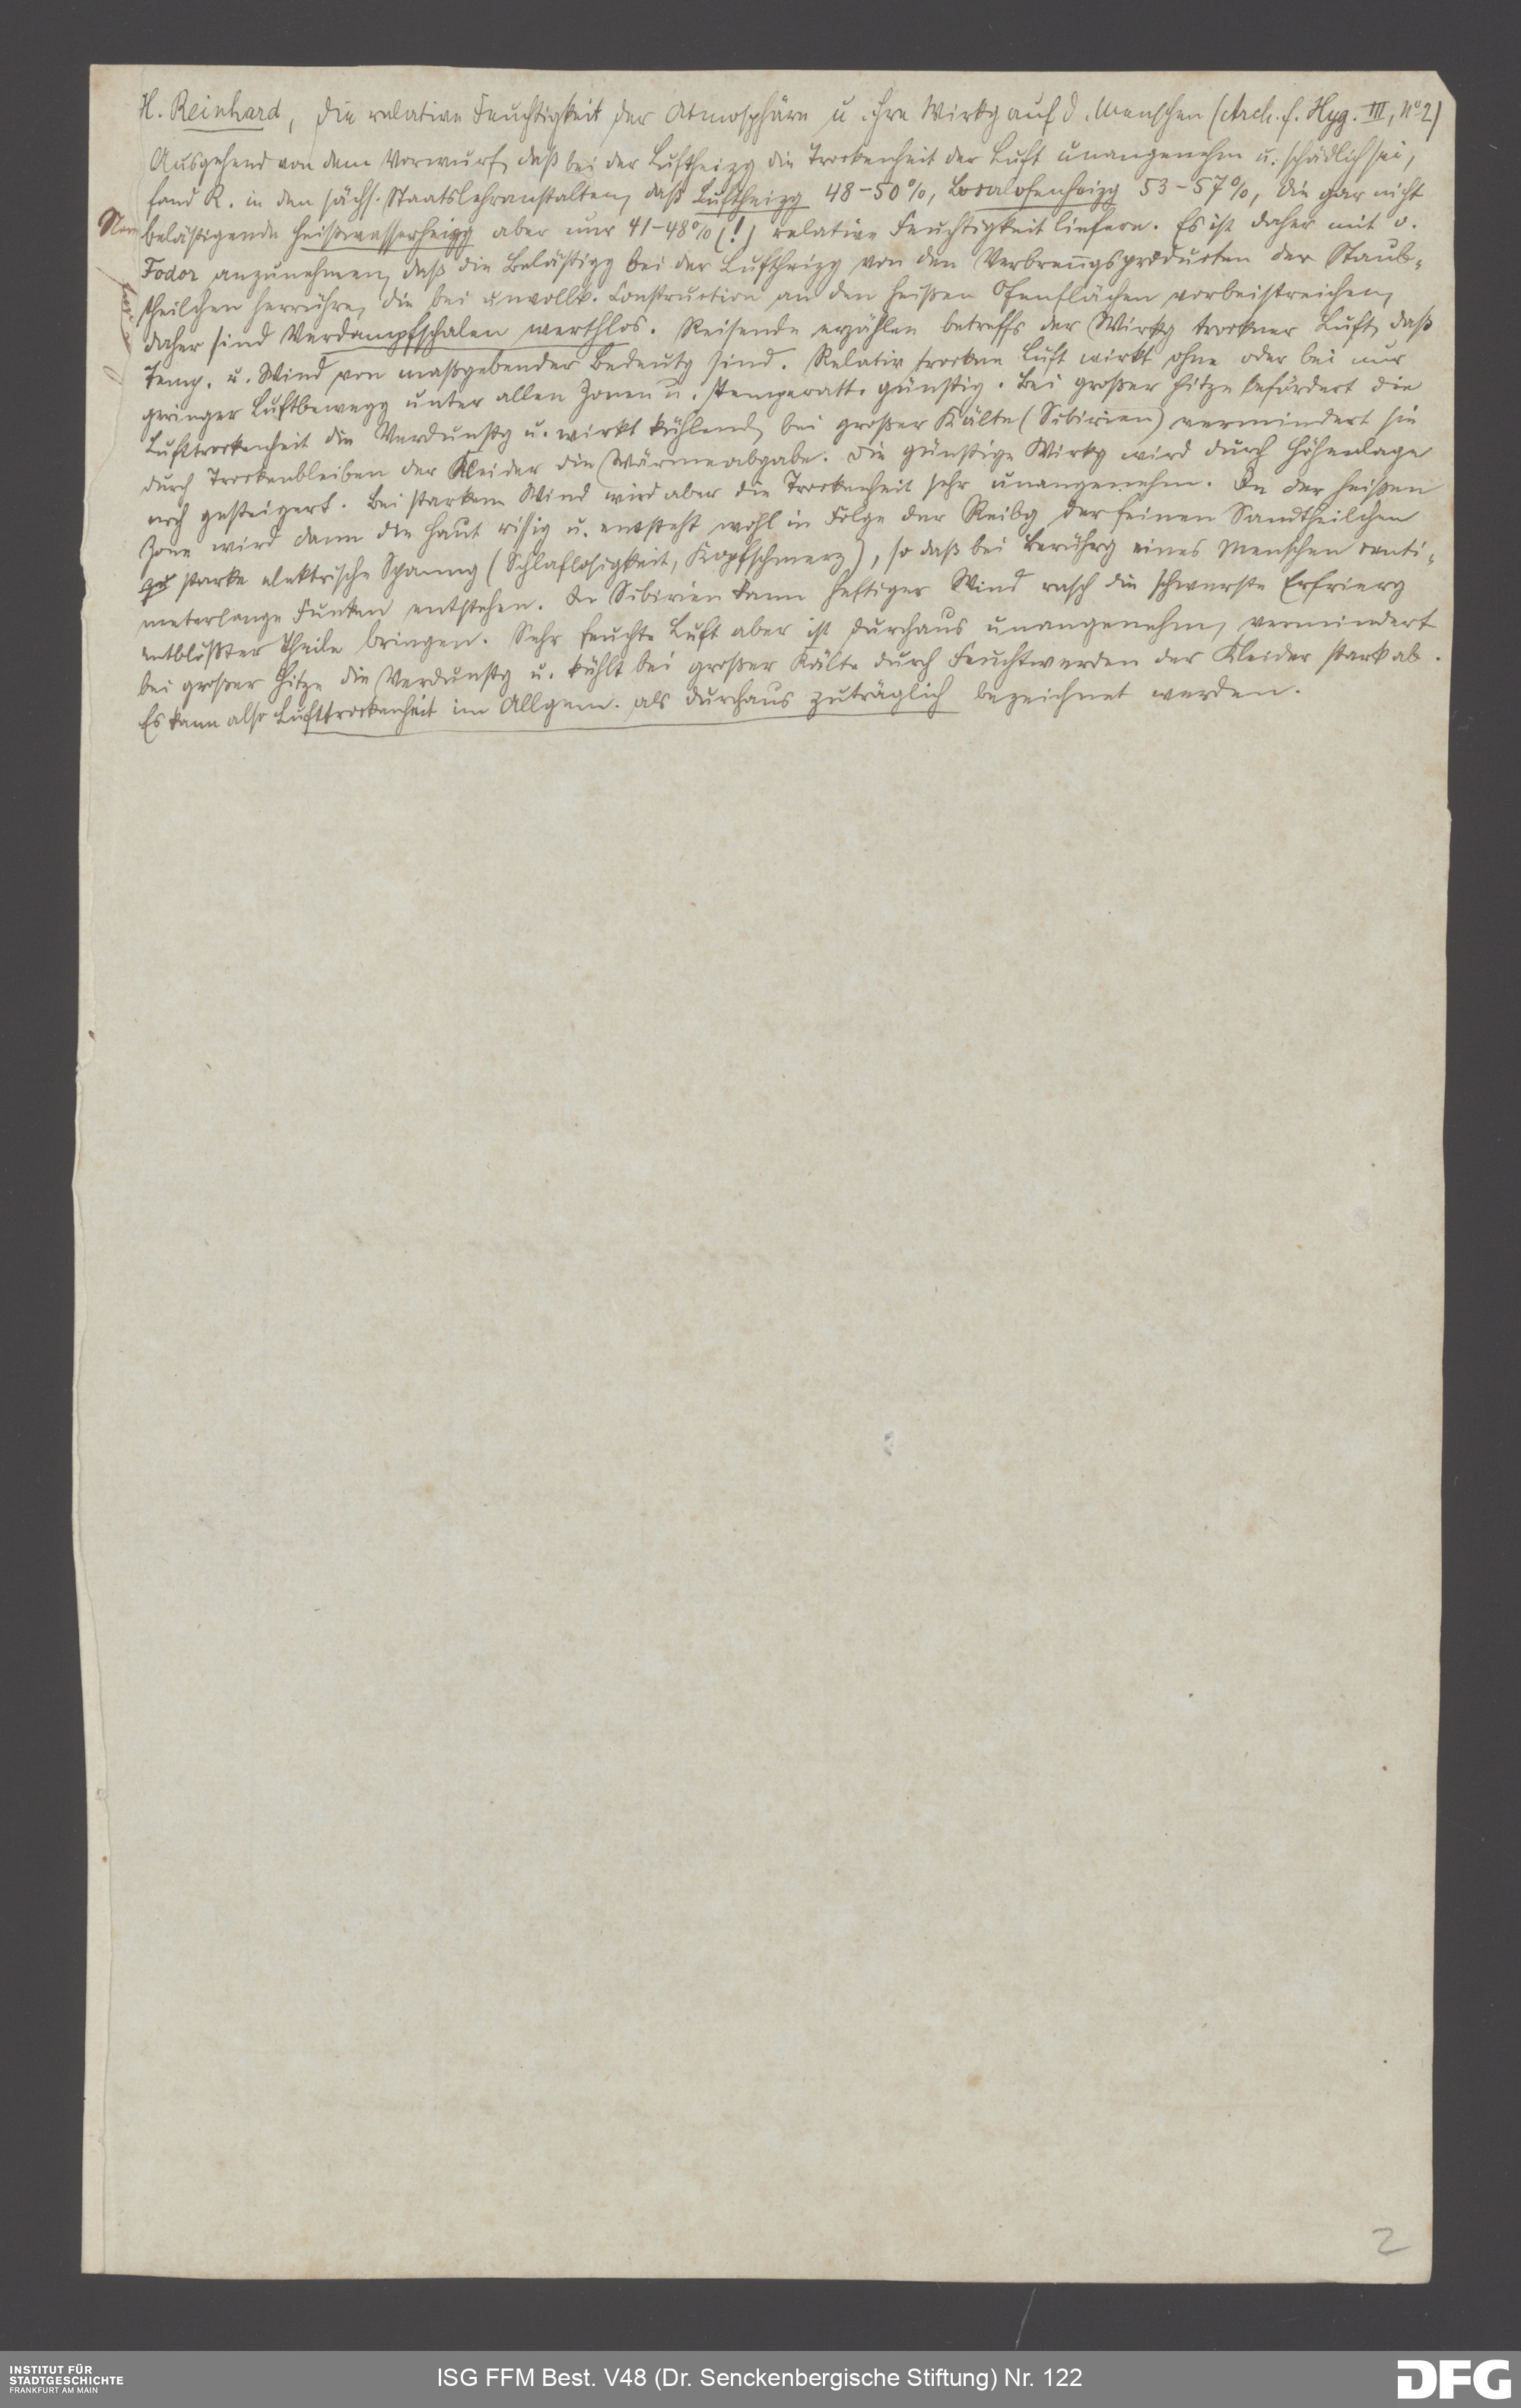 H. Reinhard, die relative Feuchtigkeit der Atmosphäre u. ihre Wirkg auf d. Menschen (Arch. f. Hyg. III, No 2)
Ausgehend von dem Vorwurf, daß bei der Luftheizg die Trockenheit der Luft unangenehm u. schädlich sei,
fand R. in den sächs. Staatslehranstalten, daß Luftheizg 48–50%, Localofenheizg 53–57%, die gar nicht
belästigende Heißwasserheizg aber nur 41–48% (!) relative Feuchtigkeit liefern. Es ist daher mit v.
Fodor anzunehmen, daß die Belästigg bei der Luftheizg von den Verbrenngsproducten der Staub-
theilchen herrühre, die bei unvollk. Construction an den heißen Ofenflächen vorbeistreichen,
daher sind Verdampfschalen werthlos. Reisende erzählen betreffs der Wirkg trockner Luft, daß
Temp. u. Wind von maßgebender Bedeutg sind. Relativ trockne Luft wirkt ohne oder bei nur
geringer Luftbewegg unter allen Zonen u. Temperatt. günstig. Bei großer Hitze befördert die
Lufttrockenheit die Verdunstg u. wirkt kühlend, bei großer Kälte (Sibirien) vermindert sie
durch Trockenbleiben der Kleider die Wärmeabgabe. Die günstige Wirkg wird durch Höhenlage
noch gesteigert. Bei starkem Wind wird aber die Trockenheit sehr unangenehm. In der heißen
Zone wird dann die Haut rissig u. entsteht wohl in Folge der Reibg der feinen Sandtheilchen
starke elektrische Spanng (Schlaflosigkeit, Kopfschmerz), so daß bei Berührg eines Menschen centi-
meterlange Funken entstehen. In Sibirien kann heftiger Wind rasch die schwerste Erfrierg
entblößter Theile bringen. Sehr feuchte Luft aber ist durchaus unangenehm, vermindert
bei großer Hitze die Verdunstg u. kühlt bei großer Kälte durch Feuchtwerden der Kleider stark ab.
Es kann also Lufttrockenheit im Allgem. als durchaus zuträglich bezeichnet werden.
2
INSTITUT FÜR
STADTGESCHICHTE
FRANKFURT AM MAIN
ISG FFM Best. V48 (Dr. Senckenbergische Stiftung) Nr. 122
DFG